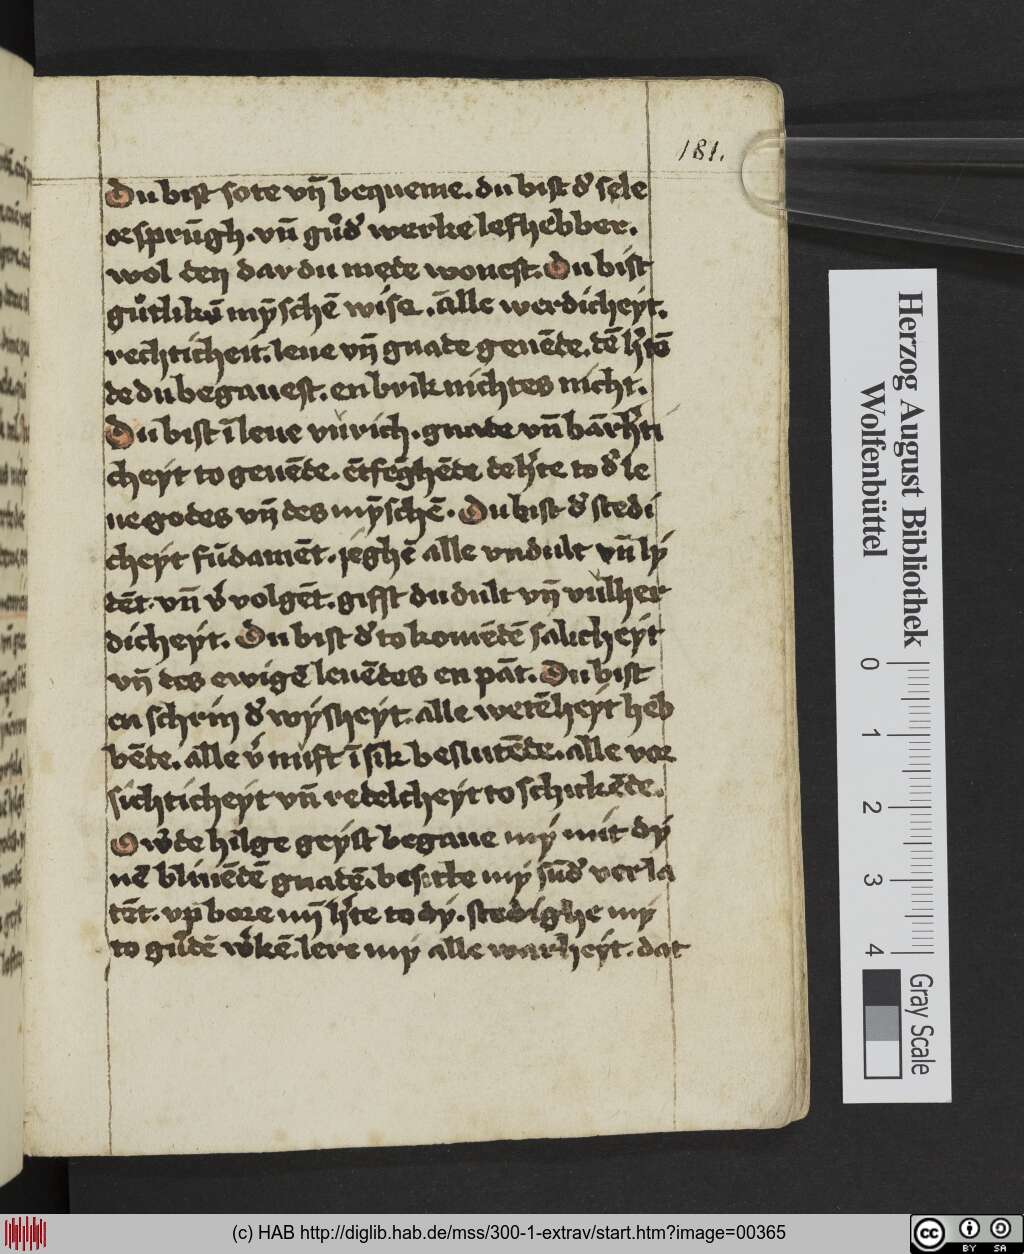 181.
Du bist sote vn̄ bequeme. du bist d' sele
orsprūgh. vn̄ gůd' werke lefhebber.
wol den dar du mede wonest. Du bist
gůtlikē mȳschē wise. ālle werdicheyt.
rechticheit. leue vn̄ gnade geuēde. dē h'tē
de du begauest. en brik nichtes nicht.
Du bist ī leue vurich. gnade vn̄ bārh'ti
cheyt to geuēde. ētfēghēde de h'te to d' le
ue godes vn̄ des mȳschē. Du bist d' stedi
cheyt fūdamēt. jeghē alle vndult vn̄ lȳ
dēt. vn̄ v'volgēt. gifft du dult vn̄ vulher
dicheyt. Du bist d' to komēdē salicheyt
vn̄ des ewigē leuēdes en pāt. Du bist
en schrin d' wysheyt. alle wetēheyt heb
bēde. alle v'nuft ī sik beslutēde. alle vor
sichticheyt vn̄ redelcheyt to schickēde.
O w'de hilge geyst begaue my mit dy
nē bliuēdē gnadē. besterke my sūd' verla
tēt. vp bore mȳ h'te to dy. stedighe my
to gudē w'kē. lere my alle warheyt. dat
Herzog August Bibliothek
Wolfenbüttel
0 1 2 3 4
Gray Scale
(c) HAB http://diglib.hab.de/mss/300-1-extrav/start.htm?image=00365
cc BY SA